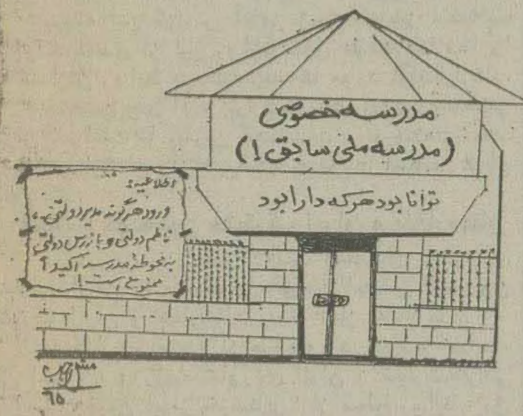 مدرسه خصوصی
(مدرسه ملی سابق!)
توانا بود هر که دارا بود
اطلاعیه:
ورود هرگونه مدیر دولتی،
ناظم دولتی و بازرس دولتی
به محوطه مدرسه اکیداً
ممنوع است!
۶۵